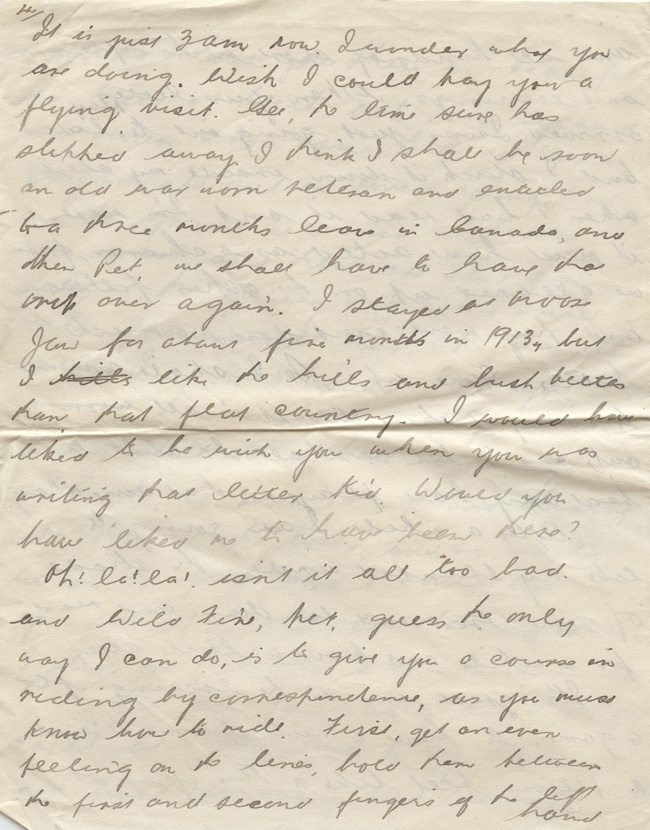 4/
It is just 3 am now. I wonder what you
are doing. Wish I could pay you a
flying visit. Gee, the time sure has
slipped away. I think I shall be soon
an old war worn veteran and entitled
to a three months leave in Canada, and
then Pet, we shall have to have the
over again. I stayed at Moose
Jaw for about five months in 1913, but
I hills like the hills and bush better
than that flat country. I would have
liked to be with you when you was
writing that letter Kid. Would you
have liked me to have been here?
Oh! la! la! isn't it all too bad.
and Wild Fire, pet, guess the only
way I can do, is to give you a course in
riding by correspondence, as you must
know how to ride. First, get an even
feeling on the lines, hold them between
the first and second fingers of the left
hand